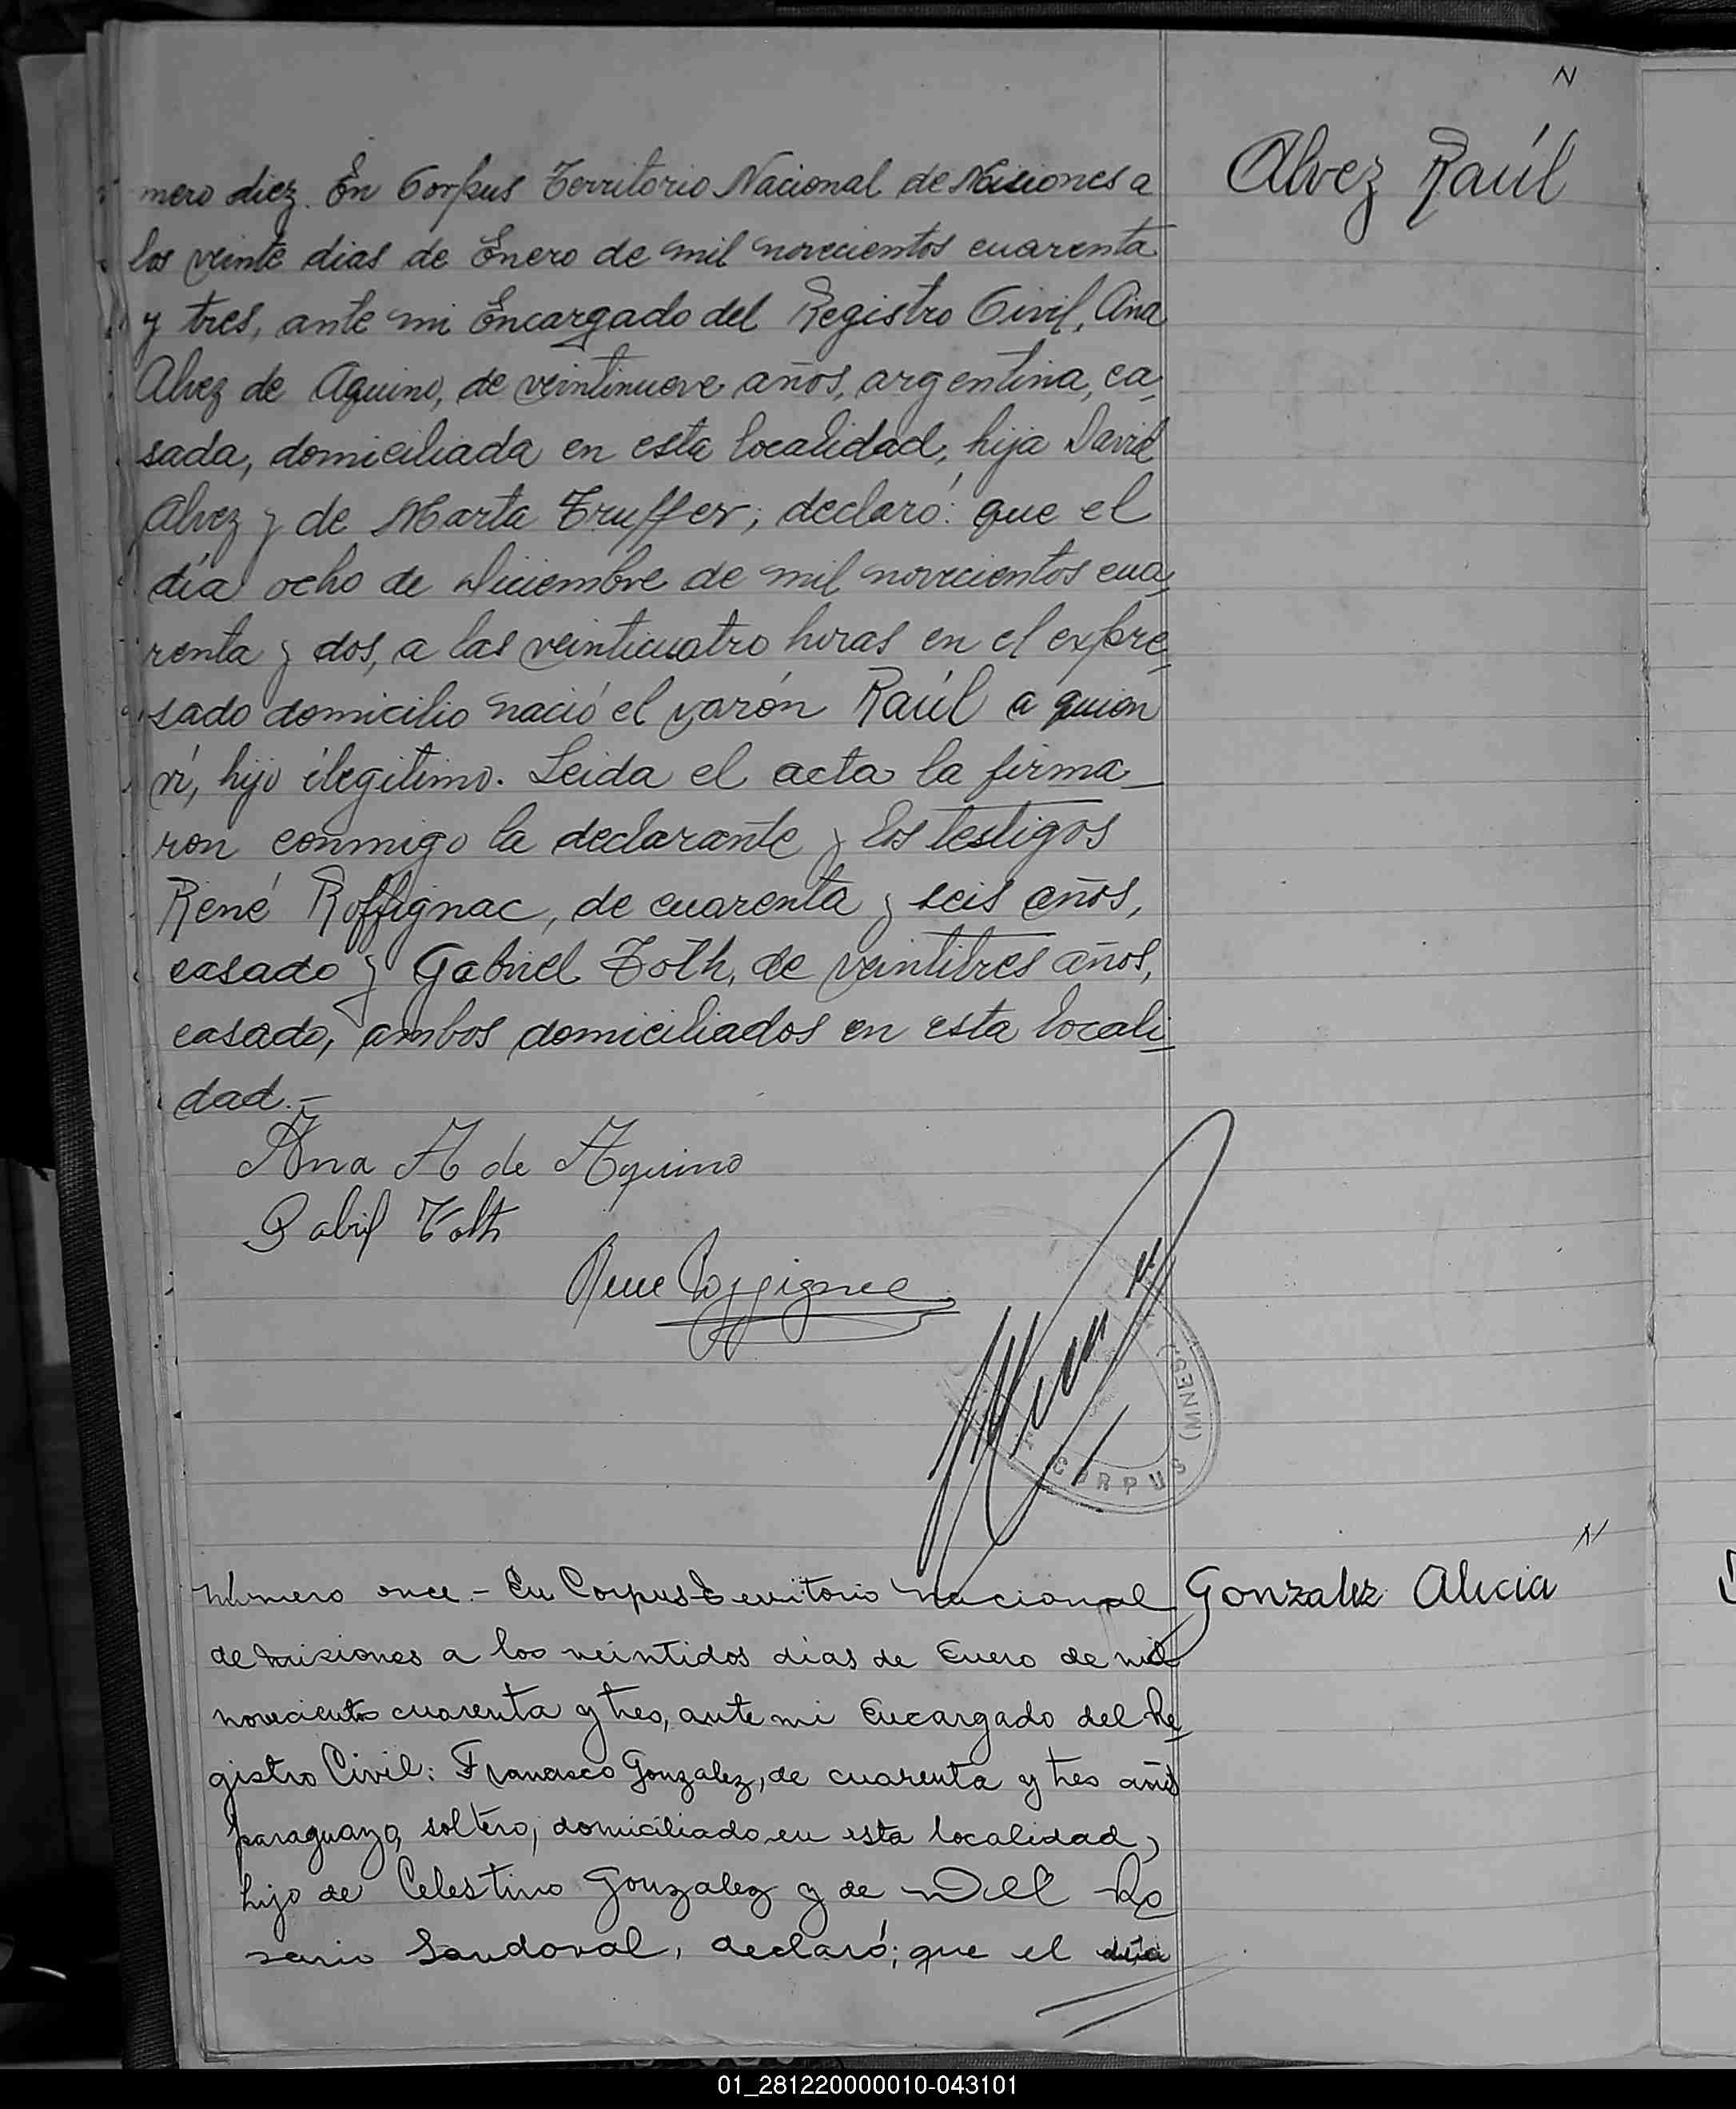 N
Alvez Raúl
mero diez. En Corpus Territorio Nacional de Misiones a
los veinte dias de Enero de mil novecientos cuarenta
y tres, ante mi Encargado del Registro Civil, Ana
Alvez de Aquino, de veintinueve años, argentina, ca-
sada, domiciliada en esta localidad, hija David
Alvez y de Marta Truffer; declaró: que el
día ocho de Diciembre de mil novecientos cua-
renta y dos, a las veinticuatro horas en el expre-
sado domicilio nació el varón Raúl a quien
ví, hijo ilegitimo. Leida el acta la firma-
ron conmigo la declarante y los testigos
René Roffignac, de cuarenta y seis años,
casado y Gabriel Toth, de veintitres años,
casado, ambos domiciliados en esta locali-
dad.-
Ana A de Aquino
Gabriel Toth
Rene Roffignac
(MNES)
CORPUS
N
Gonzalez Alicia
Número once.- En Corpus Territorio Nacional
de Misiones a los veintidos dias de Enero de mil
novecientos cuarenta y tres, ante mi Encargado del Re-
gistro Civil: Francisco Gonzalez, de cuarenta y tres años
paraguayo, soltero, domiciliado en esta localidad,
hijo de Celestino Gonzalez y de Del Ro-
sario Sandoval, declaró; que el día
01_281220000010-043101